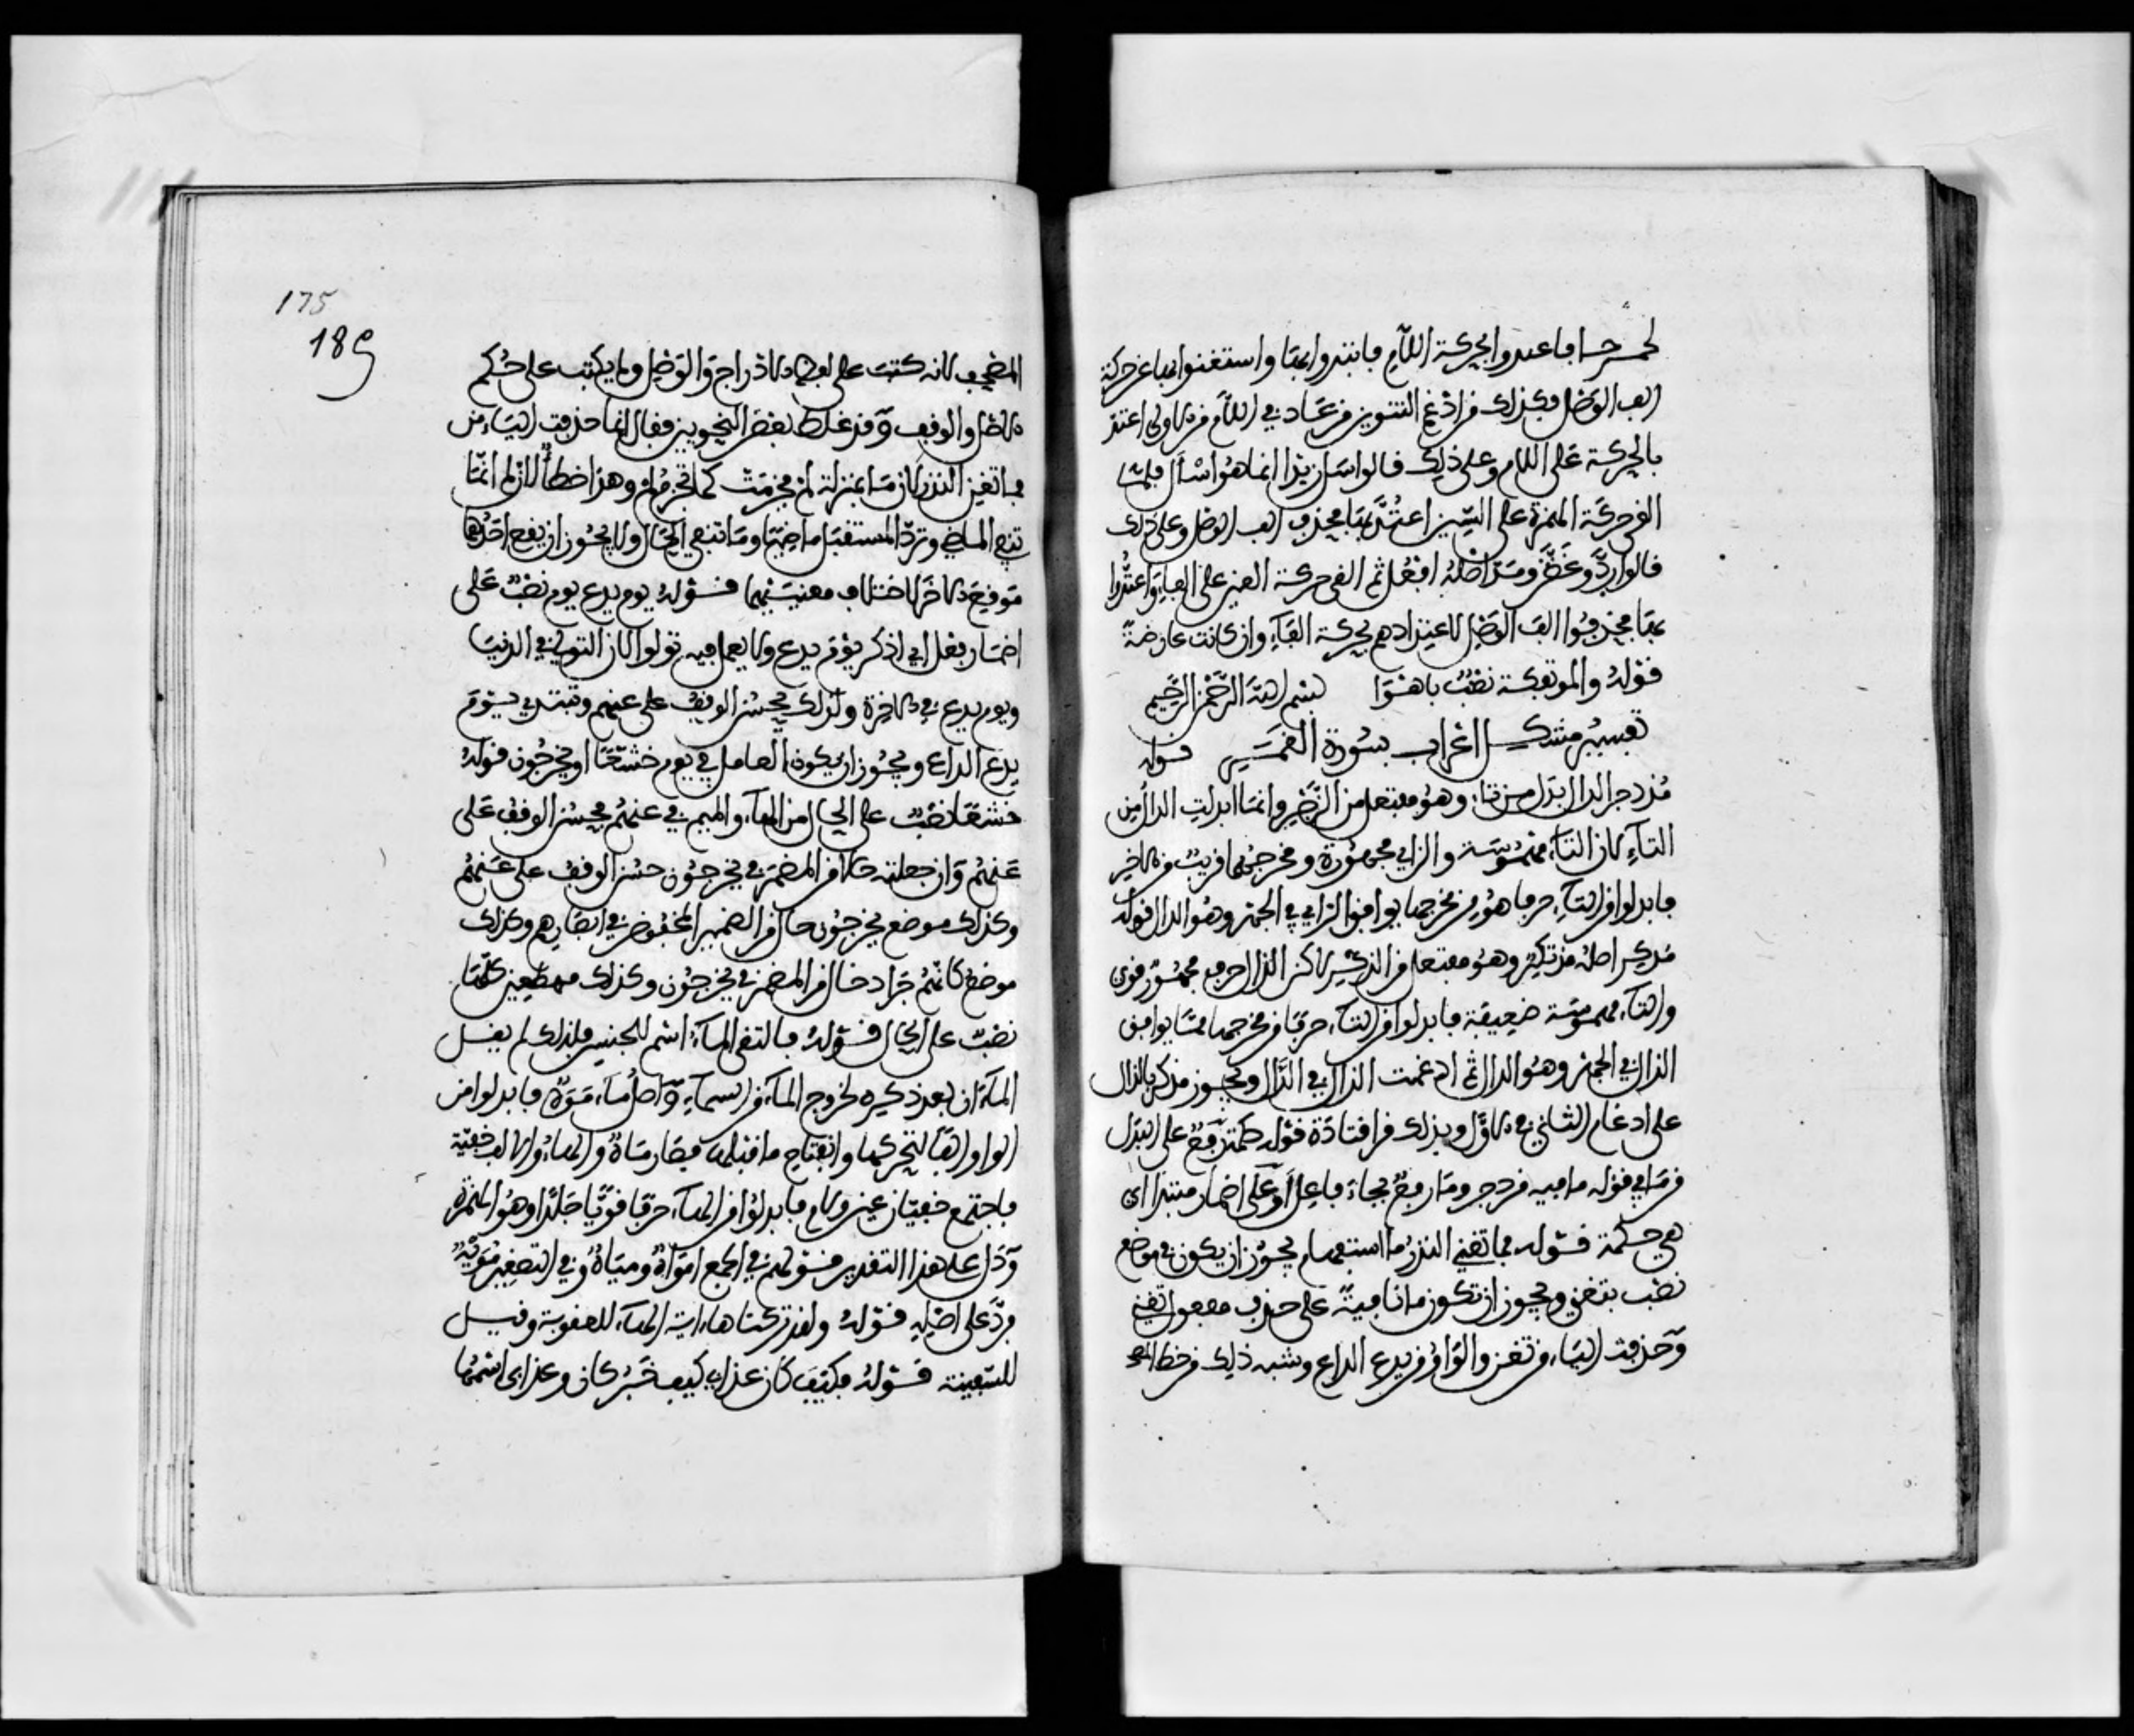 لحمر جا فاعتدوا بحركة اللام فابتدوا بها واستغنوا بها عن حركة
الف الوصل وكذلك من ادغم التنوين من عاد في اللام من الاولى اعتد
بالحركة على اللام وعلى ذلك قالوا سل زيدا انما هو اسأل فلما
القى حركة الهمزة على السين اعتد بها فحذف الف الوصل وعلى ذلك
قالوا ردّ وعضّ ومدّ اصله افعل ثم القى حركة العين على الفاء واعتدوا
بها فحذفوا الف الوصل لاعتدادهم بحركة الفاء وان كانت عارضة
قوله والموتفكة نصب باهوى بسم الله الرحمن الرحيم
تفسير مشكل اعراب سورة القمر قوله
مزدجر الدال بدل من تاء وهو مفتعل من الزجر وانما ابدلت الدال من
التاء لان التاء مهموسة والزاي مجهورة ومخرجهما قريب من الاخر
فابدلوا من التاء حرفا هو من مخرجها يوافق الزاي في الجهر وهو الدال قوله
مدكر اصله مذتكر وهو مفتعل من الذكر لاكن الذال حرف مجهور قوي
والتاء مهموسة ضعيفة فابدلوا من التاء حرفا من مخرجها مما يوافق
الذال في الجهر وهو الدال ثم ادغمت الذال في الدال ويجوز مذكر بالذال
على ادغام الثاني في الاول وبذلك قرا قتادة قوله حكمة رفع على البدل
من ما في قوله ما فيه مزدجر وما رفع بجاء فاعل او على اضمار مبتدا اي
هي حكمة قوله فما تغني النذر ما استفهام يجوز ان يكون في موضع
نصب بتغني ويجوز ان تكون ما نافية على حذف مفعول تغني
وحذفت الياء من تغن والواو من يدع الداع وشبه ذلك من خط المصـ
175
189
المصحف لانه كتب على لفظ الادراج والوصل ولم يكتب على حكم
الاصل والوقف وقد غلط بعض النحويين فقال انما حذفت الياء من
فما تغن النذر لان ما بمنزلة لم فجزمت كما تجزم لم وهذا خطأ لان لم انما
تنفي الماضي وترد المستقبل ماضيا وما تنفي الحال ولا يجوز ان يقع احدهما
موقع الاخر لاختلاف معنييهما قوله يوم يدع يوم نصب على
اضمار فعل اي اذكر يوم يدع ولا يعمل فيه تولوا لان التولي في الدنيا
ويوم يدع في الاخرة ولذلك يحسن الوقف على عنهم وتبتدي بيوم
يدع الداع ويجوز ان يكون العامل في يوم خشعا او يخرجون قوله
خشعا نصب على الحال من الهاء والميم في عنهم فيحسن الوقف على
عنهم وان جعلته حالا من المضمر في يخرجون حسن الوقف على عنهم
وكذلك موضع يخرجون حال من الضمير المخفوض في ابصارهم وكذلك
موضع كانهم جراد حال من المضمر في يخرجون وكذلك مهطعين كلها
نصب على الحال قوله فالتقى الماء اسم للجنس فلذلك لم يقل
الماءان بعد ذكره لخروج الماء من السماء واصل ماء موه فابدلوا من
الواو الفا لتحركها وانفتاح ما قبلها فصار ماه والهاء والالف خفية
فاجتمع خفيان عين ولام فابدلوا من الهاء حرفا قويا جلدا وهو الهمزة
ودل على هذا التقدير قولهم في الجمع امواه ومياه وفي التصغير مويه
فرد على اصله قوله ولقد تركناها اية الهاء للعقوبة وقيل
للسفينة قوله فكيف كان عذاب كيف خبر كان وعذابي اسمها